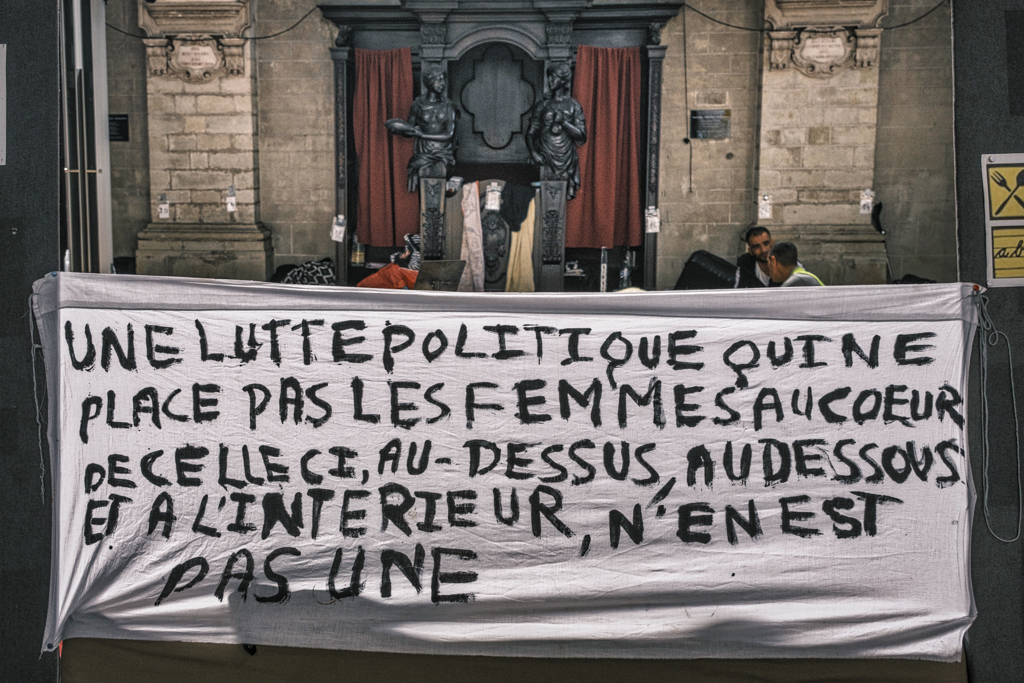 UNE LUTTE POLITIQUE QUI NE
PLACE PAS LES FEMMES AU COEUR
DE CELLE CI, AU-DESSUS, AU DESSOUS
ET A L'INTERIEUR, N'EN EST
PAS UNE